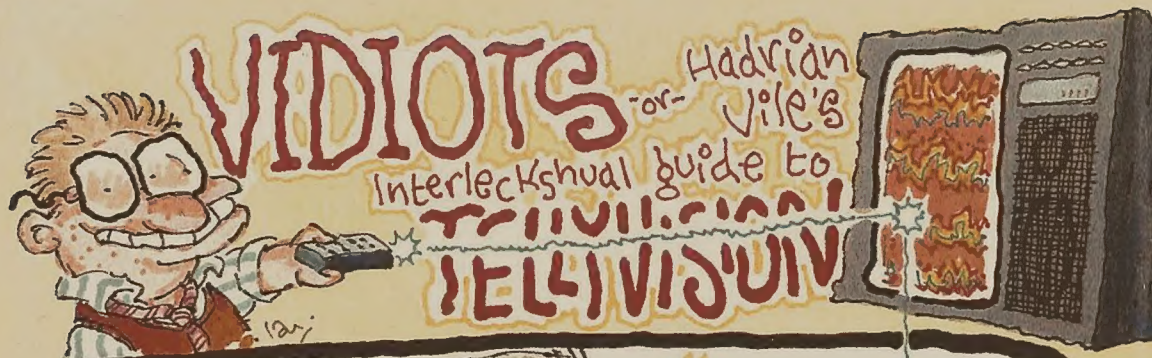 VIDIOTS
-or-
Hadrian
Vile's
Interleckshual guide to
TELLIVISION